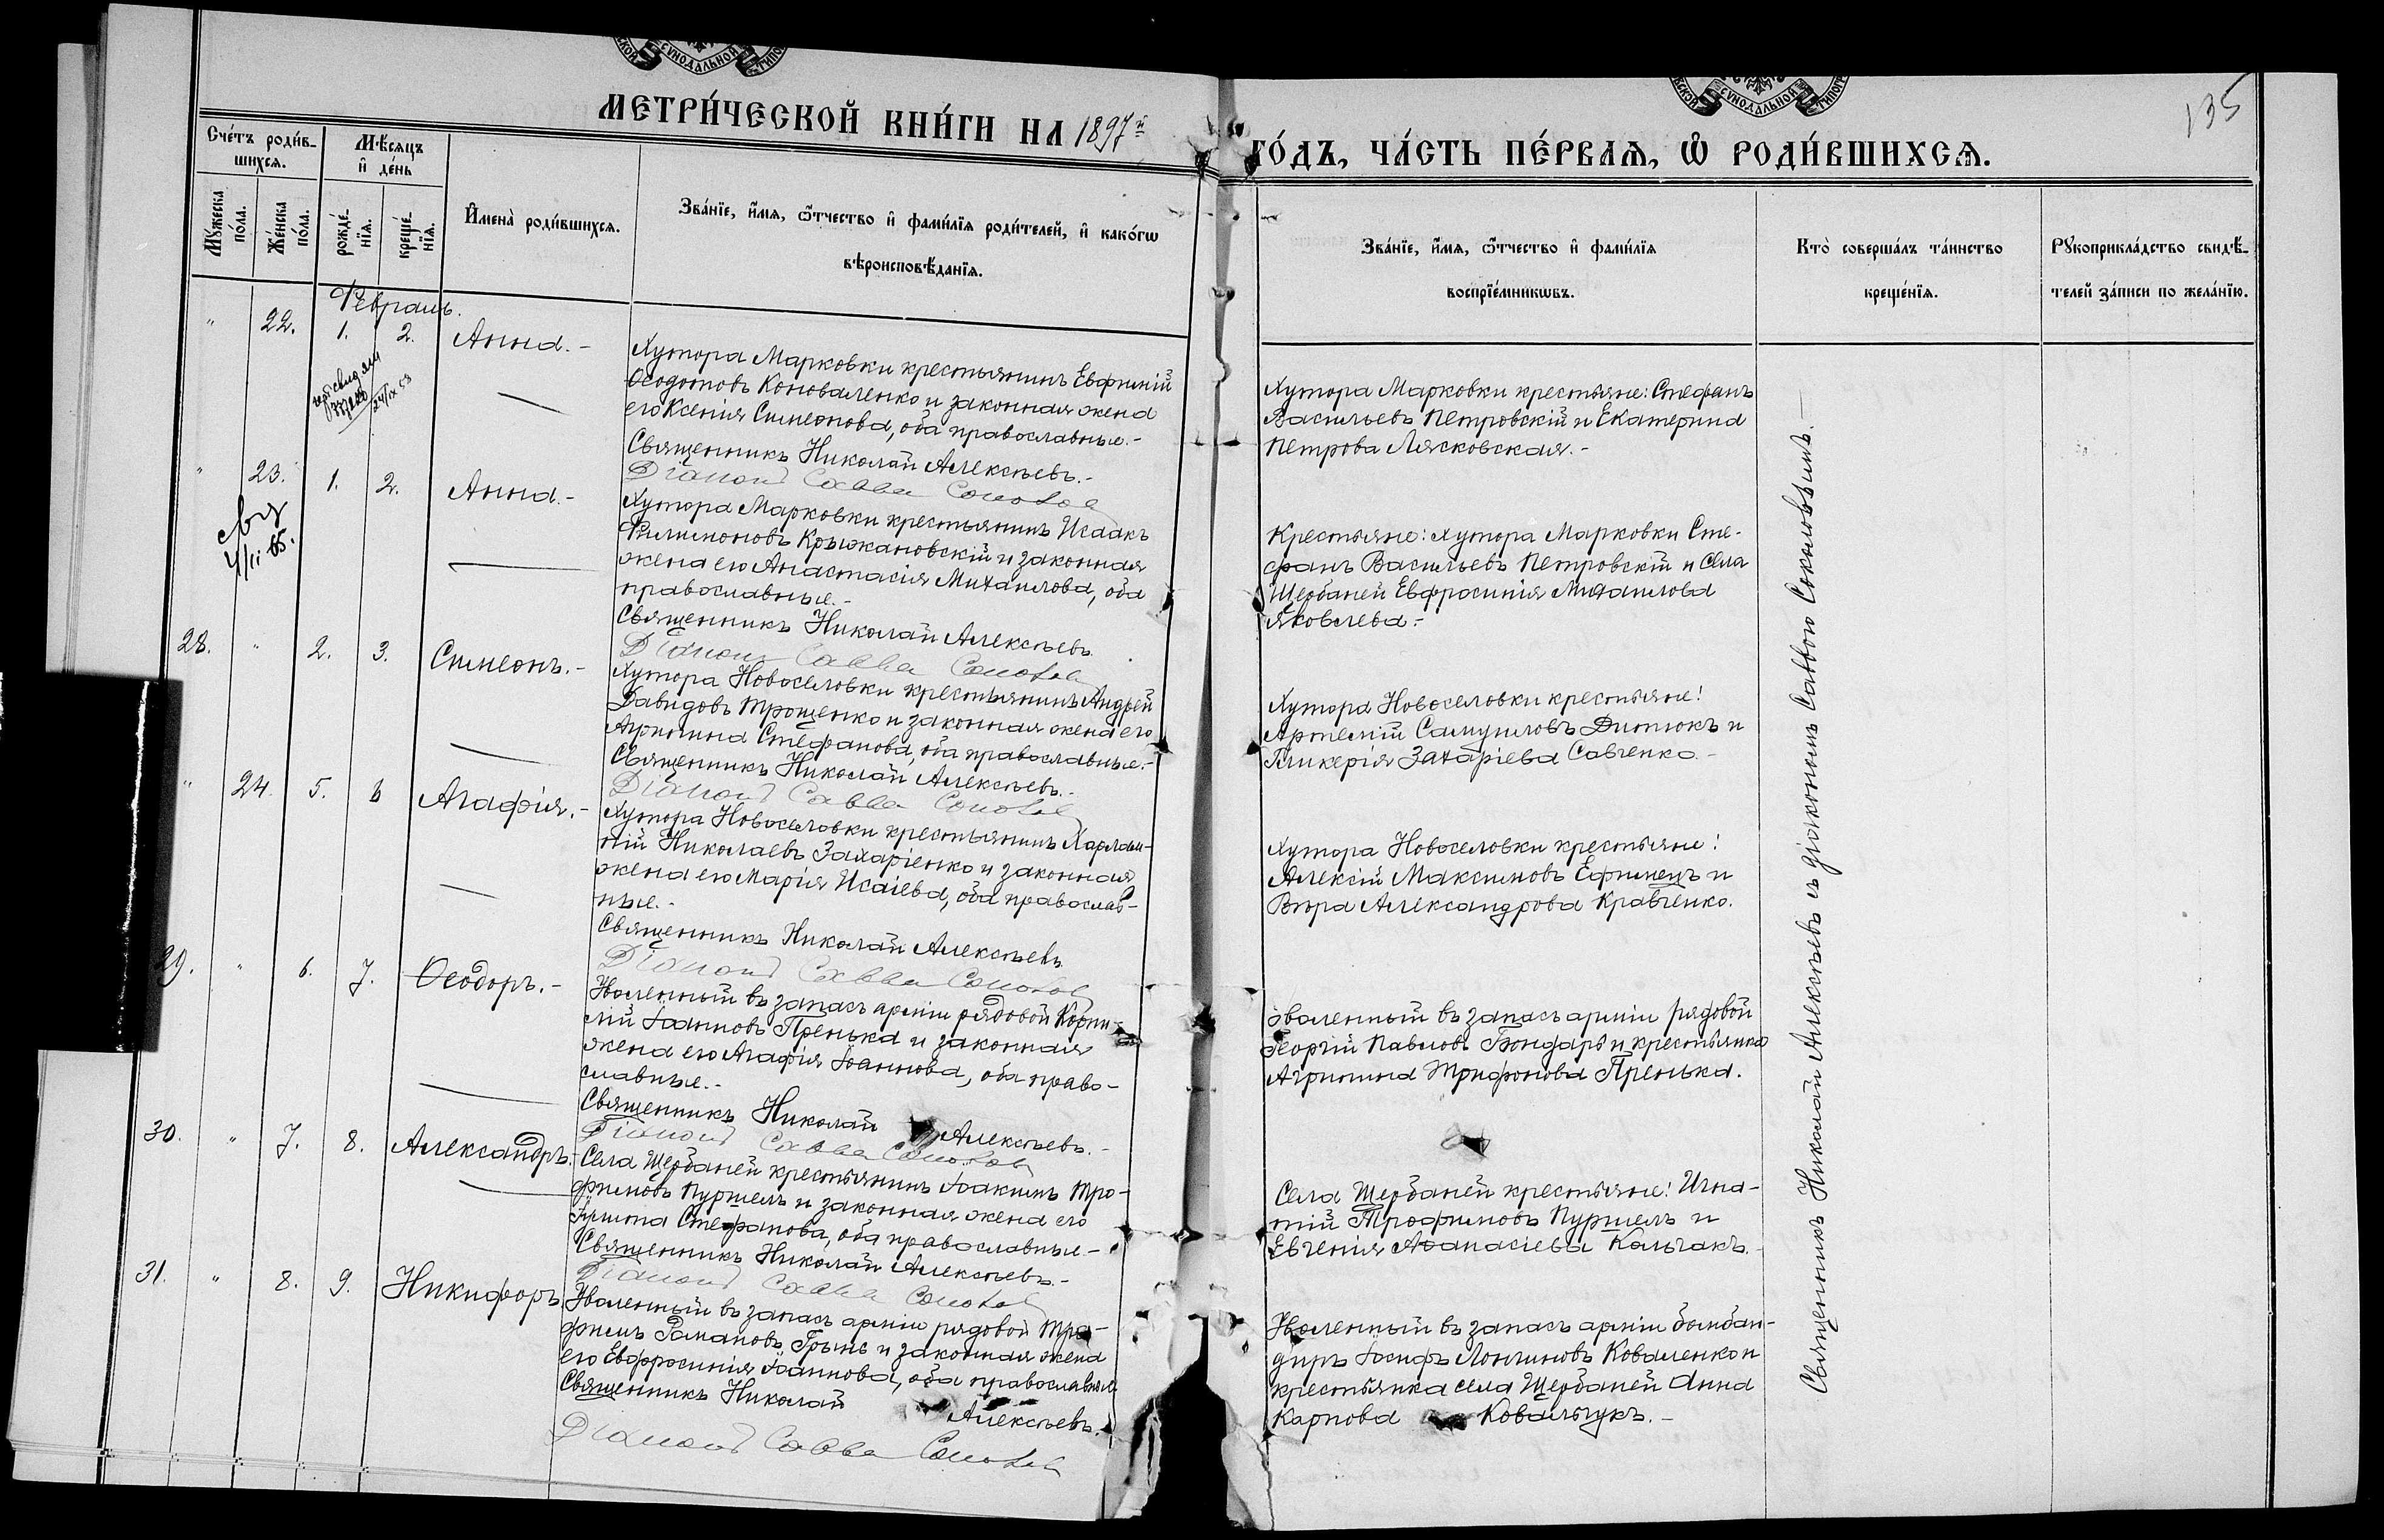 МЕТРИ́ЧЕСКОЙ КНИ́ГИ НА 1897й
ГО́ДЪ, ЧА́СТЬ ПЕ́РВАѦ, Ѡ҆ РОДИ́ВШИХСѦ.
135
Сче́тъ роди́в-
шихсѧ.
Мѣ́сяцъ
и҆ де́нь
Мꙋ́жеска
по́ла.
Же́нска
по́ла.
рожде́-
нїѧ.
креще́-
нїѧ.
И҆мена̀ роди́вшихсѧ.
Зва́нїе, и҆́мѧ, ѻ҆́тчество и҆ фами́лїѧ роди́телей, и҆ како́гѡ
вѣроисповѣ́данїѧ.
Зва́нїе, и҆́мѧ, ѻ҆́тчество и҆ фами́лїѧ
воспрїе́мникѡвъ.
Кто̀ соверша́лъ та́инство
креще́нїѧ.
Рꙋкоприкла́дство свидѣ́-
телей за́писи по жела́нїю.
Февраль.
" 22. 1. 2. Анна.-
Хутора Марковки крестьянинъ Евфимій
Ѳеодотовъ Коноваленко и законная жена
его Ксенія Симеонова, оба православные.-
Священникъ Николай Алексѣевъ.-
Діаконъ Савва Соколов
Хутора Марковки крестьяне: Стефанъ
Васильевъ Петровскій и Екатерина
Петрова Лясковская.-
24/IX 53
" 23. 1. 2. Анна.-
Хутора Марковки крестьянинъ Исаакъ
Филимоновъ Крыжановскій и законная
жена его Анастасія Михаилова, оба
православные.-
Священникъ Николай Алексѣевъ
Діаконъ Савва Соколов
Крестьяне: хутора Марковки Сте-
фанъ Васильевъ Петровскій и села
Щербаней Евфросинія Михаилова
Яковлева.-
28. " 2. 3. Симеонъ.-
Хутора Новоселовки крестьянинъ Андрей
Давидовъ Трощенко и законная жена его
Агрипина Стефанова, оба православные.-
Священникъ Николай Алексѣевъ.-
Діаконъ Савва Соколов
Хутора Новоселовки крестьяне:
Артемій Самуиловъ Дитюкъ и
Гликерія Захаріева Савченко.-
" 24. 5. 6 Агафія.-
Хутора Новоселовки крестьянинъ Харлам-
пій Николаевъ Захаріенко и законная
жена его Марія Исаіева, оба православ-
ные.-
Священникъ Николай Алексѣевъ
Діаконъ Савва Соколов
Хутора Новоселовки крестьяне:
Алексій Максимовъ Ефимецъ и
Вѣра Александрова Кравченко.
29. " 6. 7. Ѳеодоръ.-
Уволенный въ запасъ арміи рядовой Корни-
лій Іоанновъ Пренька и законная
жена его Агафія Іоаннова, оба право-
славные.-
Священникъ Николай Алексѣевъ.-
Діаконъ Савва Соколов
Уволенный въ запасъ арміи рядовой
Георгій Павловъ Бондарь и крестьянка
Агрипина Трифонова Пренька.
30. " 7. 8. Александръ.-
Села Щербаней крестьянинъ Іоакимъ Тро-
фимовъ Пуршелъ и законная жена его
Стефанова, оба православные.-
Священникъ Николай Алексѣевъ.-
Діаконъ Савва Соколов
Села Щербаней крестьяне: Игна-
тій Трофимовъ Пуршелъ и
Евгенія Аѳанасіева Колчакъ.
31. " 8. 9. Никифоръ
Уволенный въ запасъ арміи рядовой Тро-
фимъ Романовъ Грынь и законная жена
его Евфросинія Іоаннова, оба православные
Священникъ Николай Алексѣевъ.
Діаконъ Савва Соколов
Уволенный въ запасъ арміи бомбан-
диръ Іосифъ Логгиновъ Коваленко и
крестьянка села Щербаней Анна
Карпова Ковальчукъ.-
Священникъ Николай Алексѣевъ съ діакономъ Саввою Соколовымъ.-